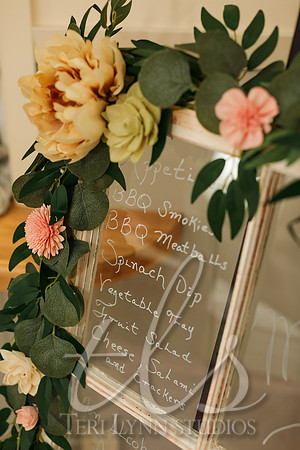 Appeti
BBQ Smokies
BBQ Meatballs
Spinach Dip
Vegetable Tray
Fruit Salad
Cheese, Salami
and Crackers
tls
Teri Lynn Studios